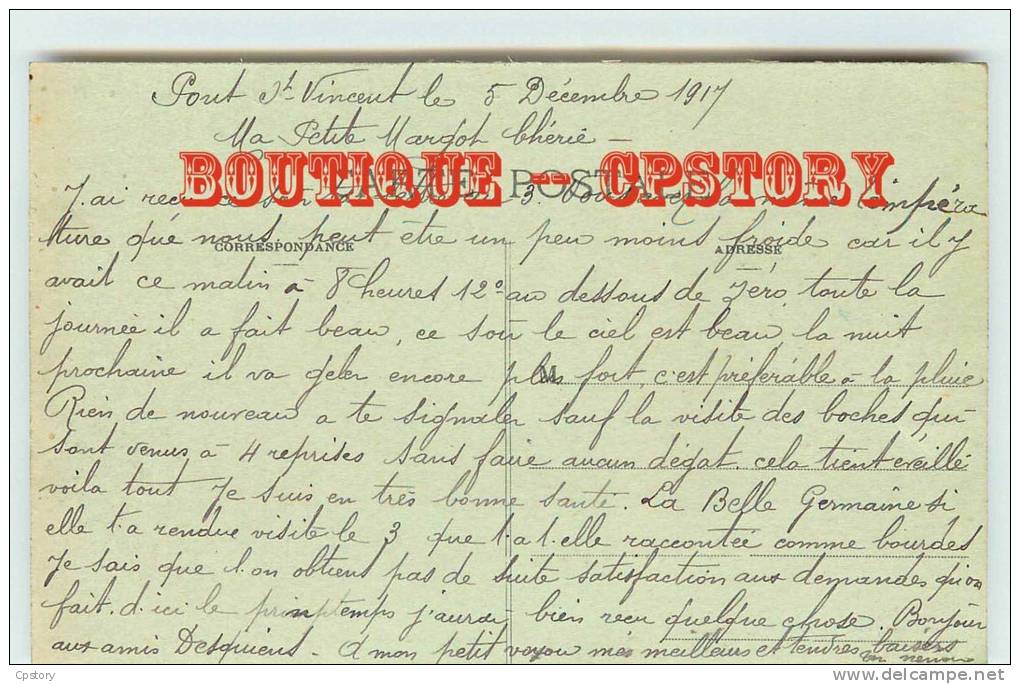 Pont St. Vincent le 5 Décembre 1917
Ma Petite Margot Chérie -
BOUTIQUE -- CPSTORY
CARTE POSTALE
J'ai reçu 3. même tempéra
ture que nous peut être un peu moins froide car il y
CORRESPONDANCE
ADRESSE
avait ce matin à 8 heures 12° au dessous de Zero, toute la
journée il a fait beau, ce soir le ciel est beau, la nuit
prochaine il va geler encore plus fort, c'est préférable à la pluie
M
Rien de nouveau a te signaler sauf la visite des boches qui
sont venus à 4 reprises sans faire aucun dégat. cela tient éveillé
voila tout Je suis en très bonne santé. La Belle Germaine si
elle t'a rendue visite le 3 que t'a t'elle racontée comme bourdes
Je sais que l'on obtient pas de suite satisfaction aux demandes qu'on
fait. d'ici le printemps j'aurai bien reçu quelque chose. Bonjour
aux amis Desquiens - A mon petit voyou mes meilleurs et tendres baisers
Cpstory